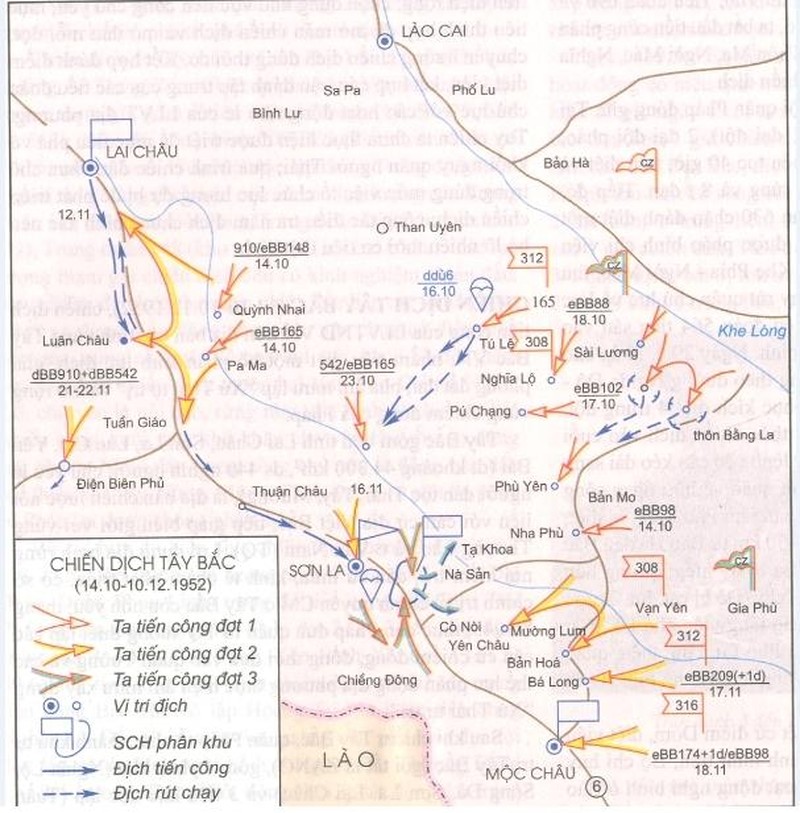 LÀO CAI
Sa Pa
Phố Lu
Bình Lư
LAI CHÂU
Bảo Hà
cz
12.11
Than Uyên
910/eBB148
14.10
312
cz
ddù6
16.10
165
eBB88
18.10
Quỳnh Nhai
Khe Lóng
Luân Châu
eBB165
14.10
Tú Lệ
308
Sài Lương
Pa Ma
dBB910+dBB542
21-22.11
542/eBB165
23.10
Nghĩa Lộ
eBB102
17.10
Pú Chạng
Tuần Giáo
thôn Bằng La
Điện Biên Phủ
Phù Yên
Thuận Châu
16.11
Bản Mo
eBB98
14.10
Nha Phù
Tạ Khoa
CHIẾN DỊCH TÂY BẮC
(14.10-10.12.1952)
SƠN LA
Nà Sản
308
cz
Vạn Yên
Gia Phù
Ta tiến công đợt 1
Cò Nòi
Mường Lum
Yên Châu
312
Ta tiến công đợt 2
Bản Hoá
Ta tiến công đợt 3
Chiềng Đông
Bá Long
eBB209(+1d)
17.11
Vị trí địch
316
SCH phân khu
LÀO
eBB174+1d/eBB98
18.11
Địch tiến công
MỘC CHÂU
Địch rút chạy
6